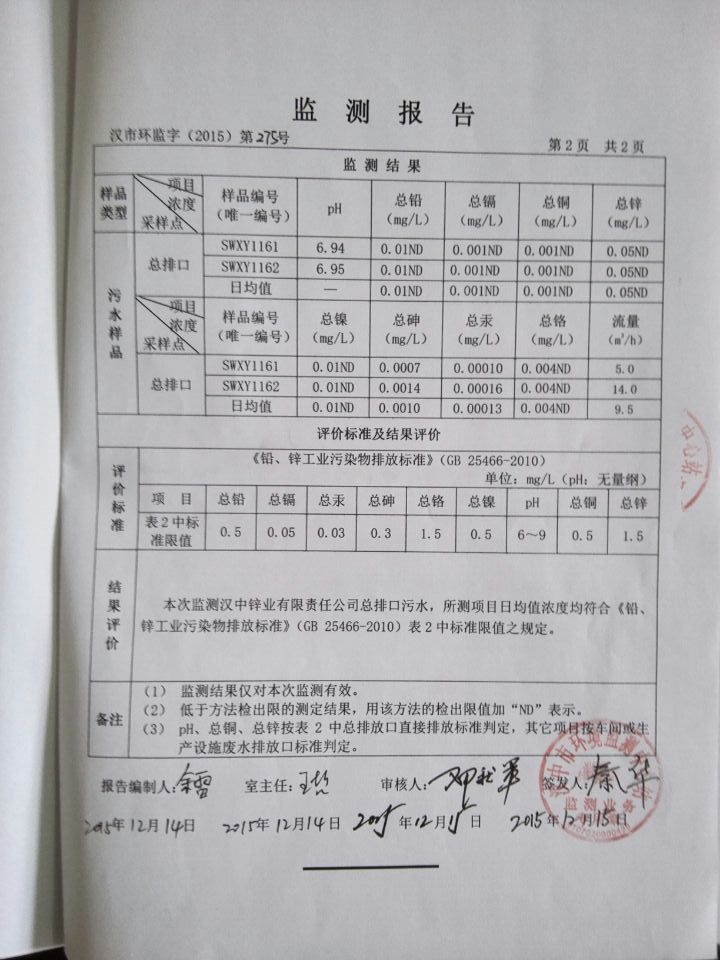 监 测 报 告
汉市环监字（2015）第275号
第 2 页 共 2 页
监 测 结 果
样品类型 项目 浓度 采样点 样品编号（唯一编号） pH 总铅（mg/L） 总镉（mg/L） 总铜（mg/L） 总锌（mg/L）
污水样品
总排口 SWXY1161 6.94 0.01ND 0.001ND 0.001ND 0.05ND
SWXY1162 6.95 0.01ND 0.001ND 0.001ND 0.05ND
日均值 — 0.01ND 0.001ND 0.001ND 0.05ND
项目 浓度 采样点 样品编号（唯一编号） 总镍（mg/L） 总砷（mg/L） 总汞（mg/L） 总铬（mg/L） 流量（m³/h）
总排口 SWXY1161 0.01ND 0.0007 0.00010 0.004ND 5.0
SWXY1162 0.01ND 0.0014 0.00016 0.004ND 14.0
日均值 0.01ND 0.0010 0.00013 0.004ND 9.5
评价标准及结果评价
评价标准
《铅、锌工业污染物排放标准》（GB 25466-2010）
单位：mg/L（pH：无量纲）
项 目 总铅 总镉 总汞 总砷 总铬 总镍 pH 总铜 总锌
表 2 中标准限值 0.5 0.05 0.03 0.3 1.5 0.5 6～9 0.5 1.5
结果评价
本次监测汉中锌业有限责任公司总排口污水，所测项目日均值浓度均符合《铅、
锌工业污染物排放标准》（GB 25466-2010）表 2 中标准限值之规定。
备注
（1） 监测结果仅对本次监测有效。
（2） 低于方法检出限的测定结果，用该方法的检出限值加“ND”表示。
（3） pH、总铜、总锌按表 2 中总排放口直接排放标准判定，其它项目按车间或生
产设施废水排放口标准判定。
报告编制人： 室主任： 审核人： 签发人：
2015年12月14日 2015年12月14日 2015年12月15日 2015年12月15日
汉中市环境监测
监测业务